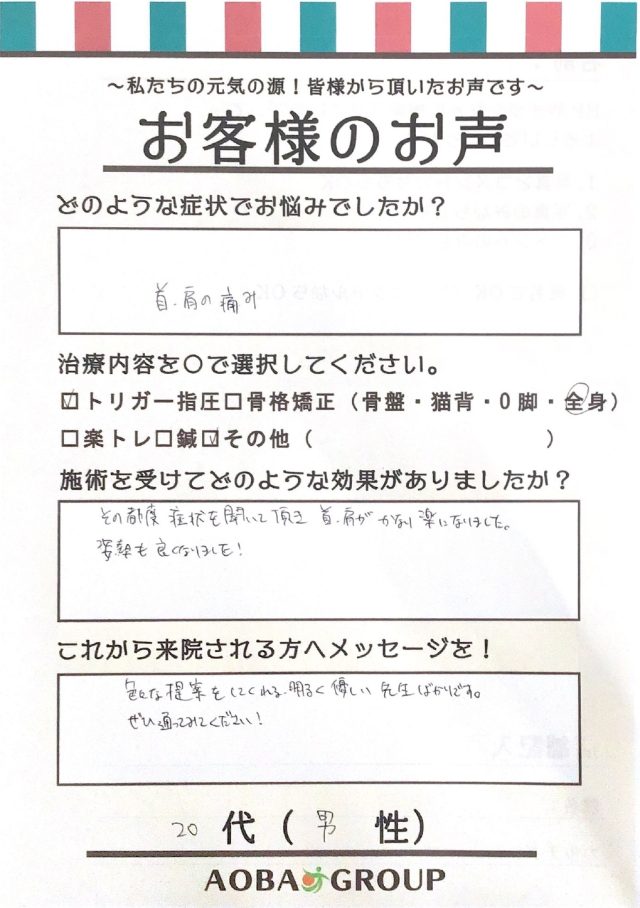 ~私たちの元気の源！皆様から頂いたお声です~
お客様のお声
どのような症状でお悩みでしたか？
首.肩の痛み
治療内容を〇で選択してください。
☑トリガー指圧□骨格矯正（骨盤・猫背・O脚・全身）
□楽トレ□鍼☑その他（　　　　　　　　　　）
施術を受けてどのような効果がありましたか？
その都度 症状を聞いて頂き 首.肩が かなり楽になりました。
姿勢も良くなりました！
これから来院される方へメッセージを！
色んな提案をしてくれる.明るく優しい先生ばかりです。
ぜひ通ってみてください！
20代（男性）
AOBA GROUP